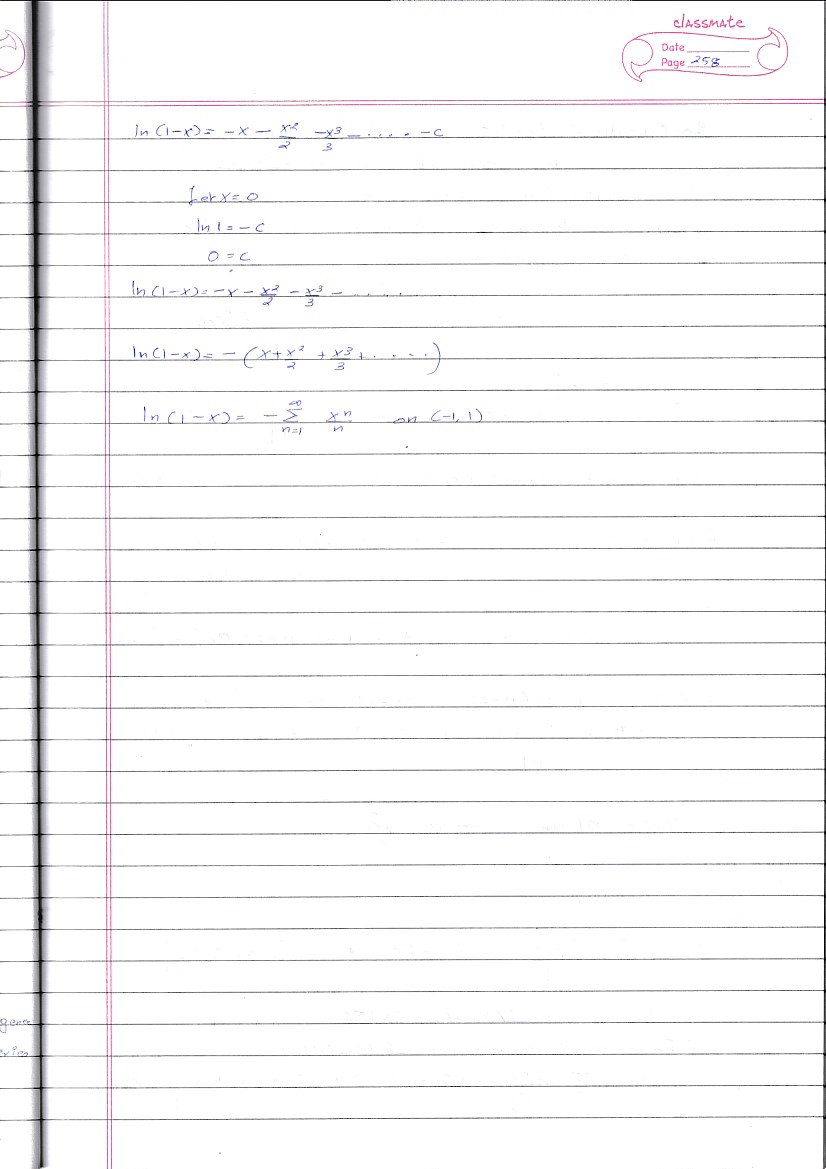 classmate
Date
Page 258
ln (1-x) = -x - x²/2 -x³/3 - ..... -c
Let x = 0
ln 1 = -c
0 = c
ln (1-x) = -x - x²/2 - x³/3 - .....
ln (1-x) = - (x + x²/2 + x³/3 + .....)
ln (1-x) = - ∞Σn=1 xⁿ/n on (-1, 1)